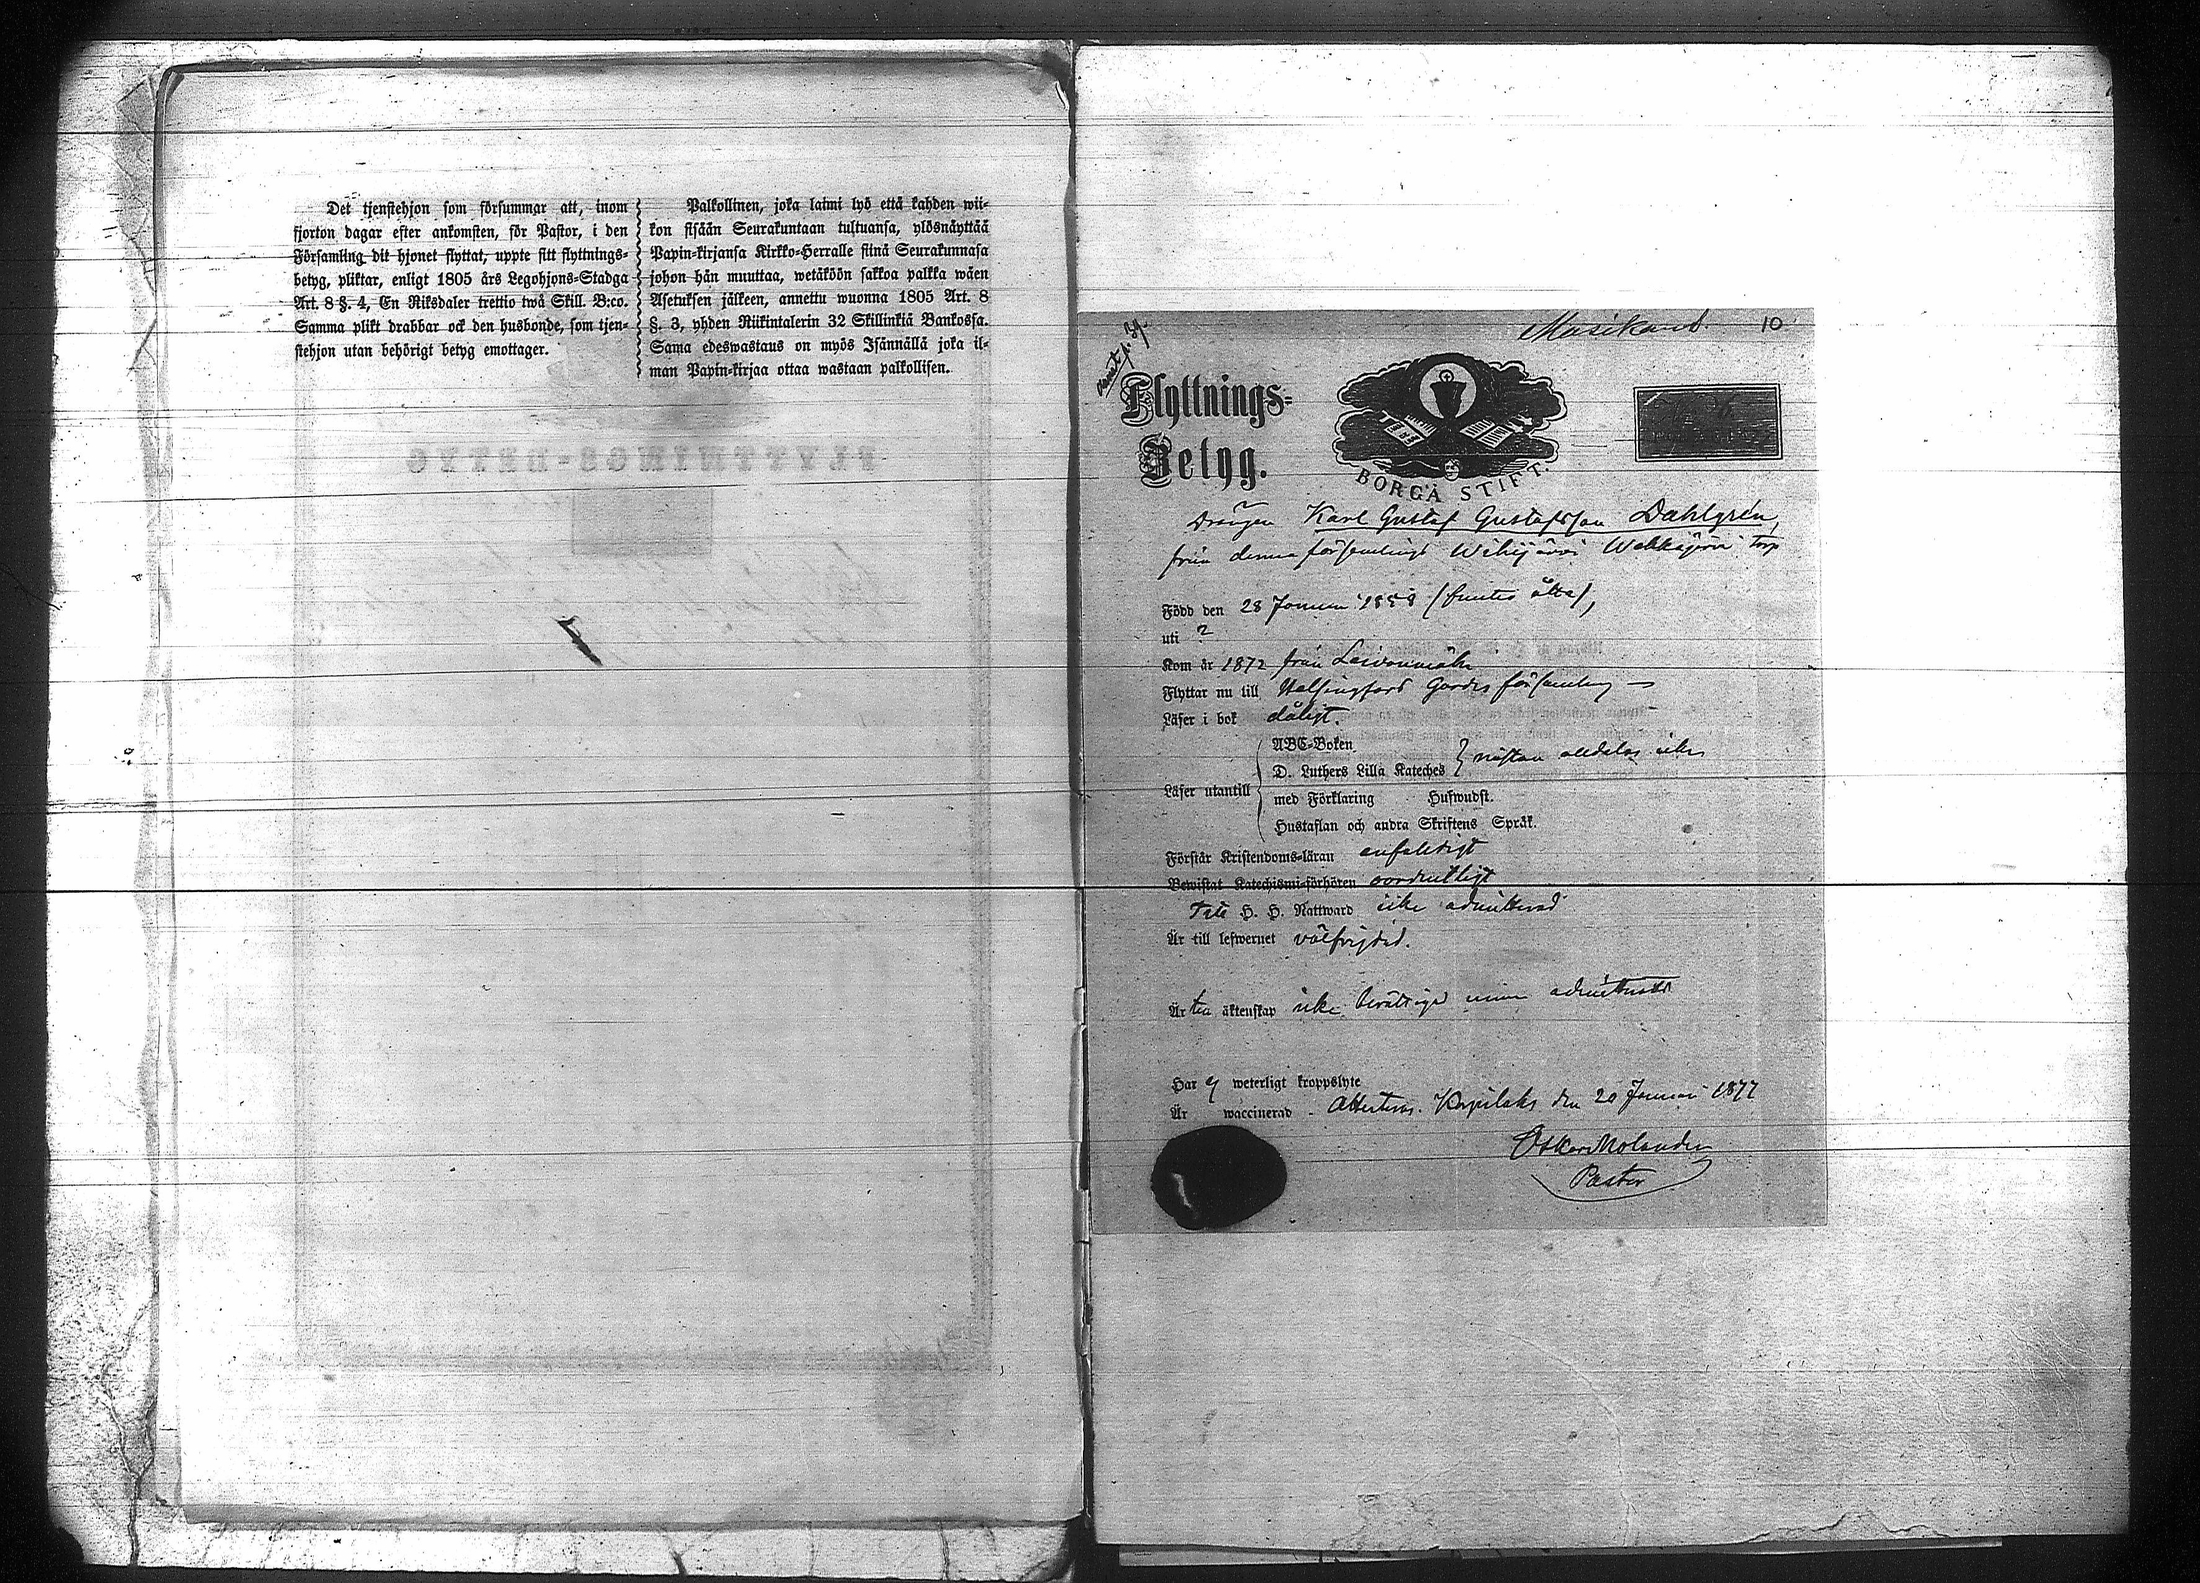 Det tjenstehjon som försummar att, inom
fjorton dagar efter ankomsten, för Pastor, i den
Församling dit hjonet flyttat, uppte sitt flyttnings-
betyg, pliktar, enligt 1805 års Legohjons-Stadga
Art. 8 §. 4, En Riksdaler trettio twå Skill. B:co.
Samma plikt drabbar ock den husbonde, som tjen-
stehjon utan behörigt betyg emottager.
Palkollinen, joka laimi lyö että kahden wii-
kon sisään Seurakuntaan tultuansa, ylösnäyttää
Papin-kirjansa Kirkko-Herralle siinä Seurakunnasa
johon hän muuttaa, wetäköön sakkoa palkka wäen
Asetuksen jälkeen, annettu wuonna 1805 Art. 8
§. 3, yhden Riikintalerin 32 Skillinkiä Bankossa.
Sama edeswastaus on myös Isännällä joka il-
man Papin-kirjaa ottaa wastaan palkollisen.
FLYTTNINGS-BETYG
Musikant. 10
Flyttnings-
Betyg.
BORGÅ STIFT.
Drängen Karl Gustaf Gustafsson Dahlgrén,
från denna församlings Wihijärvi torp
Född den 28 Januari
uti ?
Kom år 1872 från
Flyttar nu till Helsingfors Gardes församling
Läser i bok dåligt.
ABC-Boken
D. Luthers Lilla Kateches } nästan alldeles icke
Läser utantill
med Förklaring Hufwudst.
Hustaflan och andra Skriftens Språk.
Förstår Kristendoms-läran enfaldigt
Bewistat Katechismi-förhören oordentligt
H. H. Nattward icke admitterad
Är till lefwernet välfrejdad.
Är till äktenskap icke berättigad admitterad
Har ej weterligt kroppslyte
Är waccinerad. Attesteras. Kärpilaks den 20 Januari 1877
Oskar Molander
Pastor